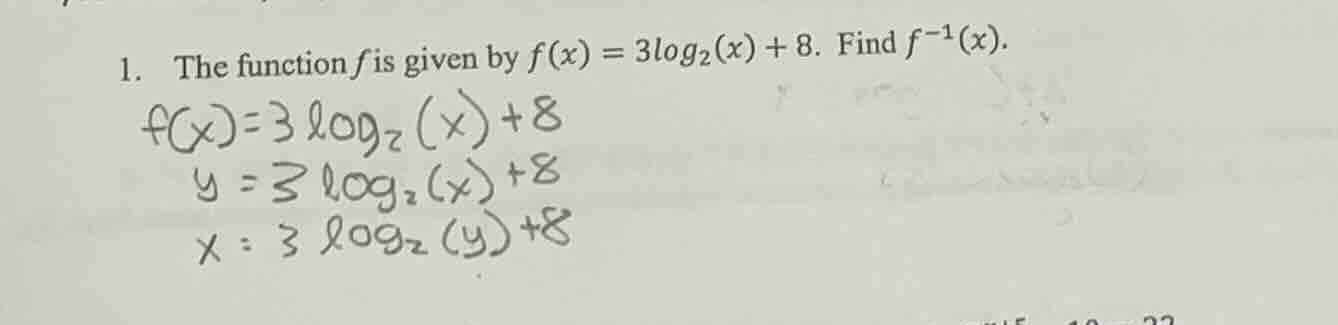 1. The function f is given by f(x) = 3log₂(x) + 8. Find f⁻¹(x).
f(x)=3 log₂(x)+8
y = 3 log₂(x)+8
x = 3 log₂(y)+8